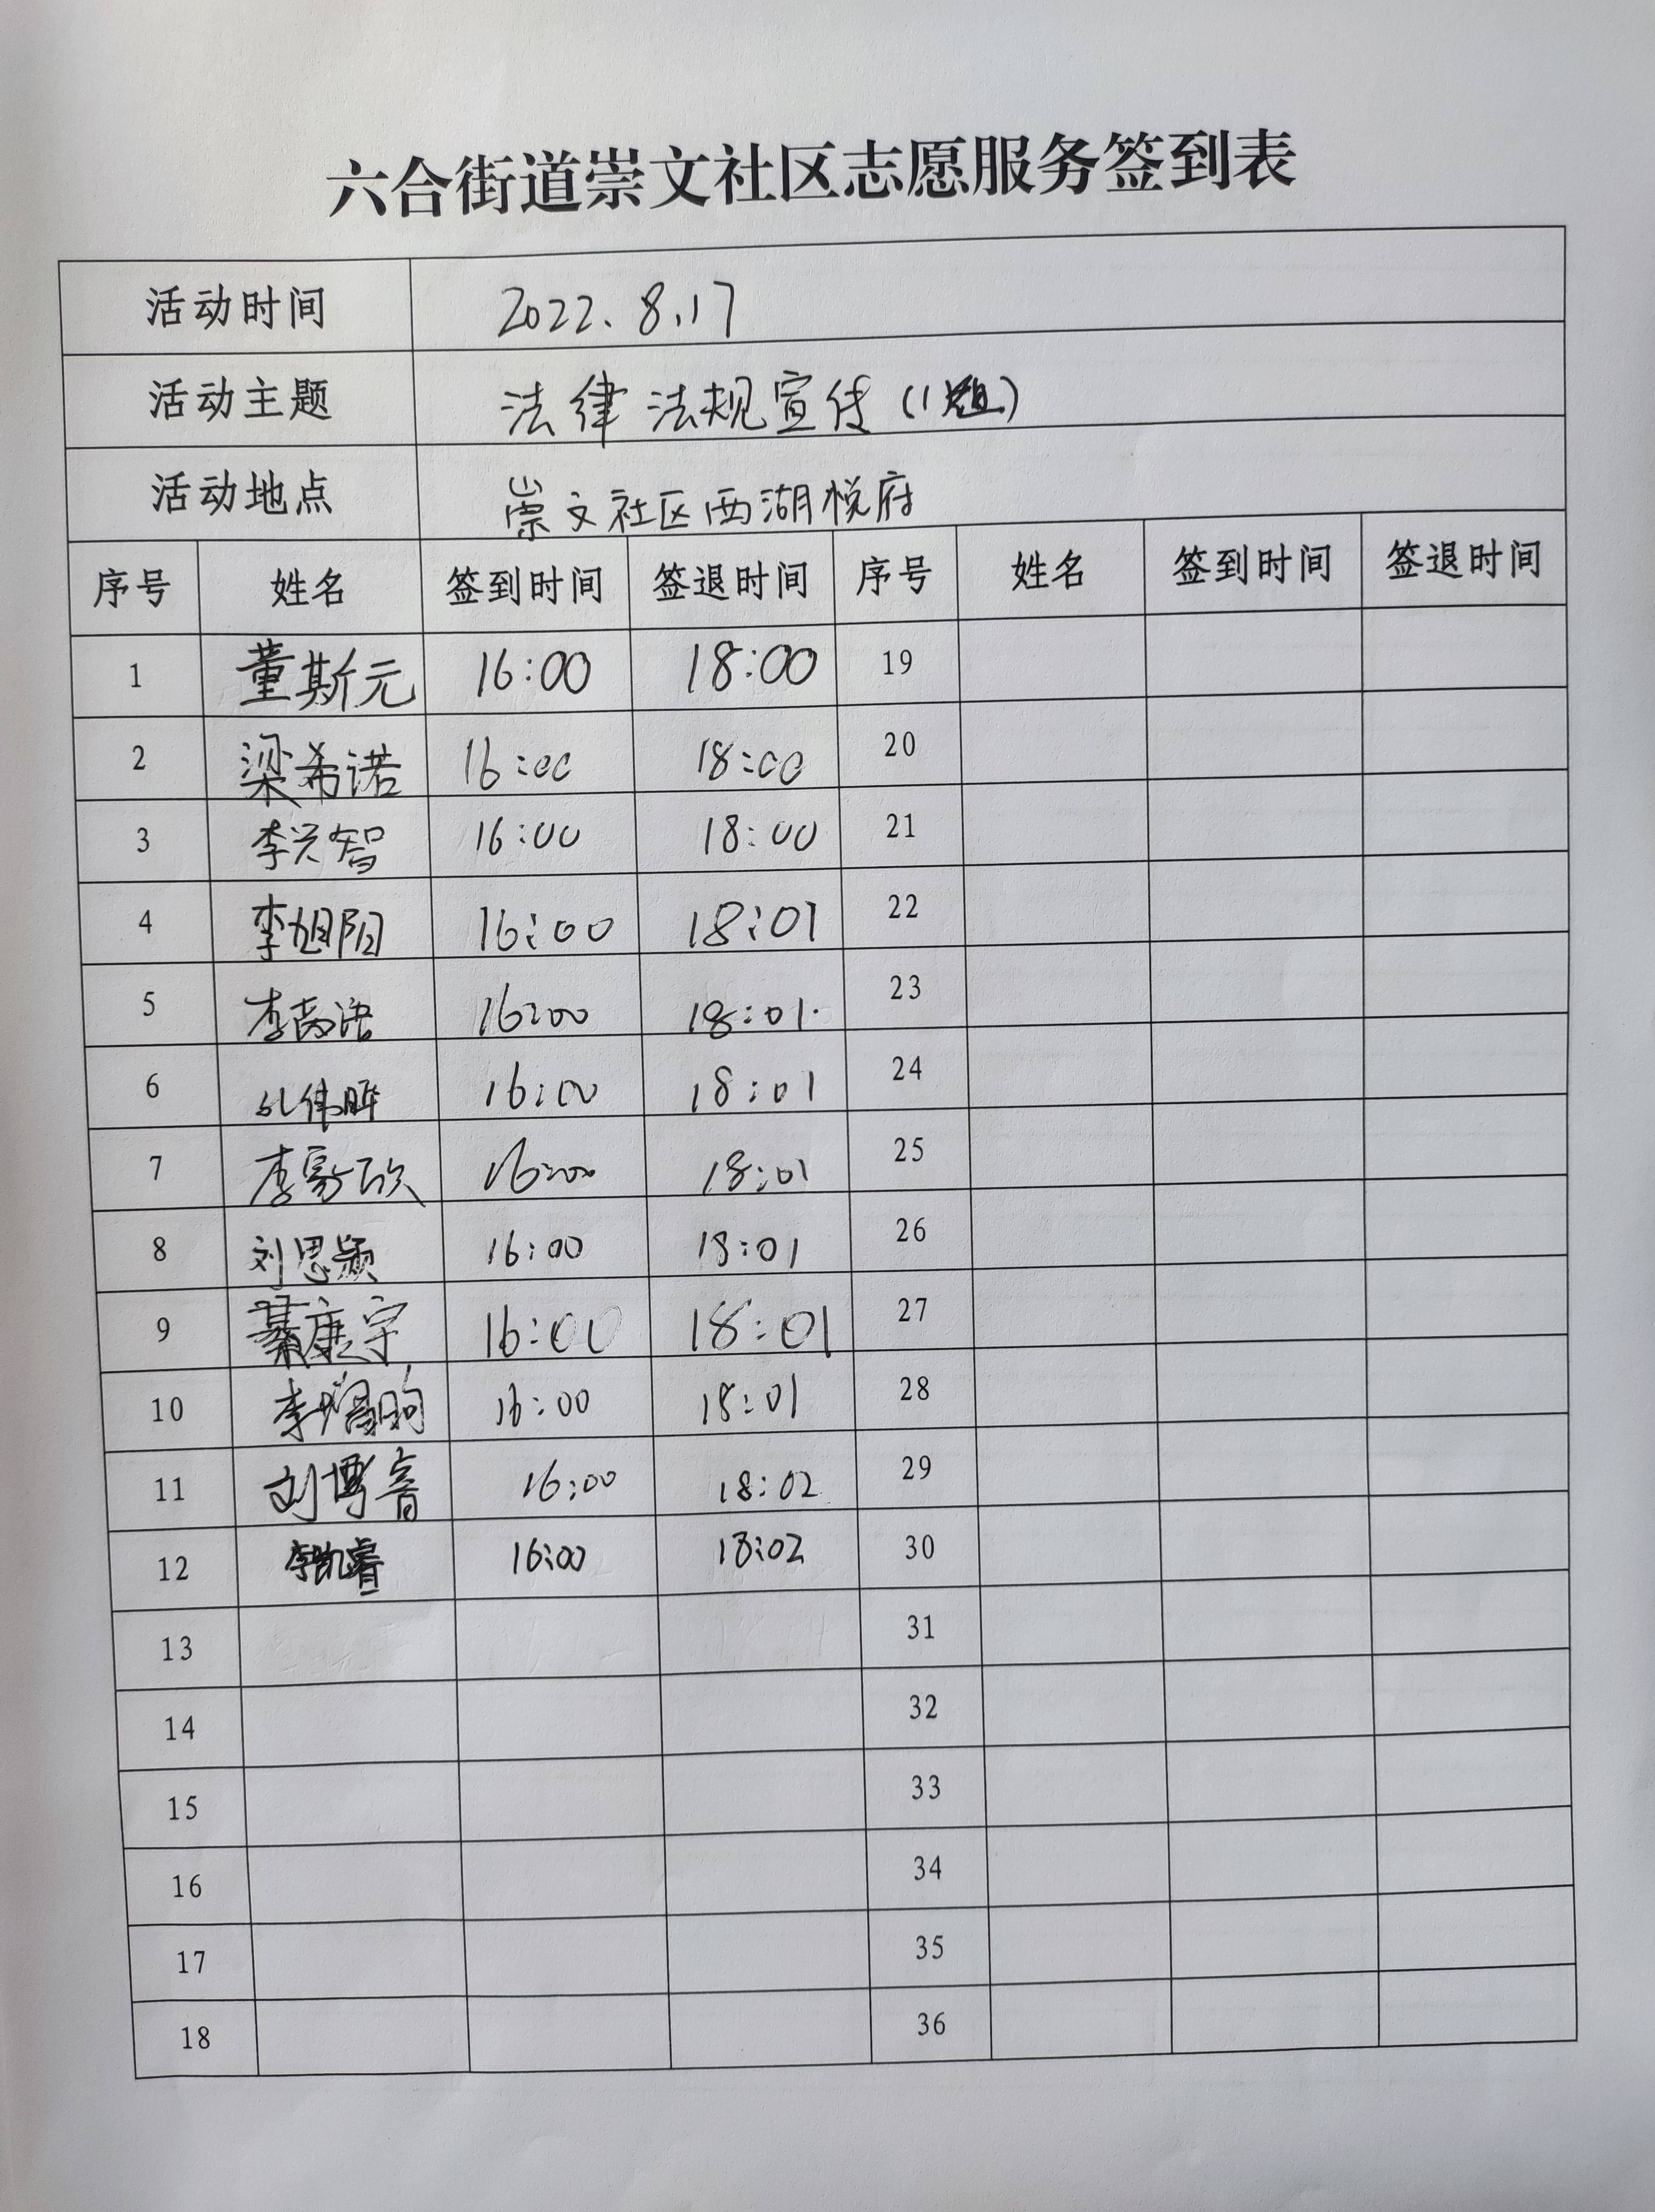 六合街道崇文社区志愿服务签到表
活动时间 2022.8.17
活动主题 法律法规宣传(1组)
活动地点 崇文社区西湖悦府
序号 姓名 签到时间 签退时间 序号 姓名 签到时间 签退时间
1 董斯元 16:00 18:00 19
2 梁希诺 16:00 18:00 20
3 李兴智 16:00 18:00 21
4 李旭阳 16:00 18:01 22
5 16:00 18:01 23
6 16:00 18:01 24
7 16:00 18:01 25
8 刘思颖 16:00 18:01 26
9 綦康宇 16:00 18:01 27
10 16:00 18:01 28
11 16:00 18:02 29
12 李凯睿 16:00 18:02 30
13 31
14 32
15 33
16 34
17 35
18 36